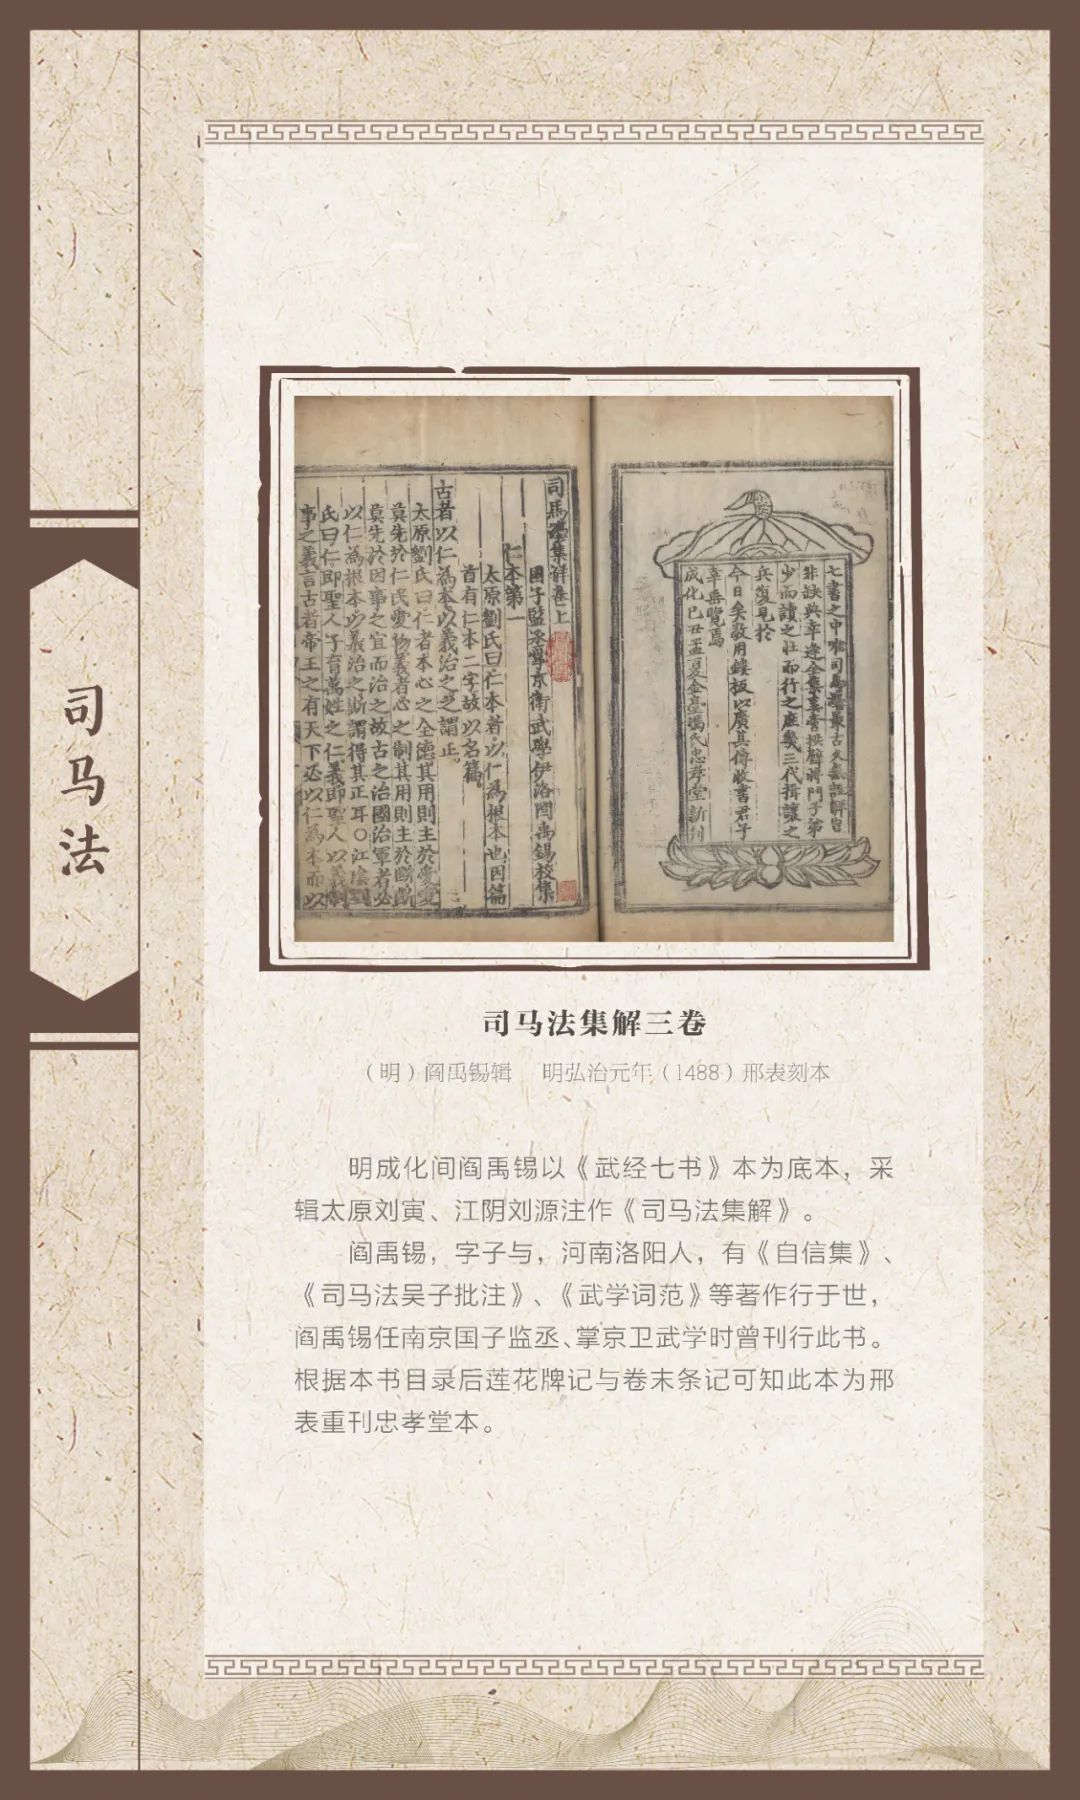 司马法
七書之中唯司馬法最古久無註詳皆
少而讀之壯而行之庶幾三代揖讓之
兵復見於
今日矣敬用鏤板以廣其傳收書君子
幸垂覽焉
成化己丑孟夏金臺馮氏忠孝堂新刊
司馬法集解卷上
國子監丞掌京衛武學伊洛閻禹錫校集
仁本第一
太原劉氏曰仁本者以仁為根本也因篇
首有仁本二字故以名篇
古者以仁為本以義治之之謂正
太原劉氏曰仁者本心之全德其用則主於愛愛
莫先於仁民愛物義者心之制其用則主於斷斷
莫先於因事之宜而治之故古之治國治軍者必
以仁為根本以義治之斯謂得其正耳○江陰劉
氏曰仁即聖人子育萬姓之仁義即聖人以義制
事之義言古者帝王之有天下必以仁為本而以
司马法集解三卷
（明）阎禹锡辑 明弘治元年（1488）邢表刻本
明成化间阎禹锡以《武经七书》本为底本，采
辑太原刘寅、江阴刘源注作《司马法集解》。
阎禹锡，字子与，河南洛阳人，有《自信集》、
《司马法吴子批注》、《武学词范》等著作行于世，
阎禹锡任南京国子监丞、掌京卫武学时曾刊行此书。
根据本书目录后莲花牌记与卷末条记可知此本为邢
表重刊忠孝堂本。